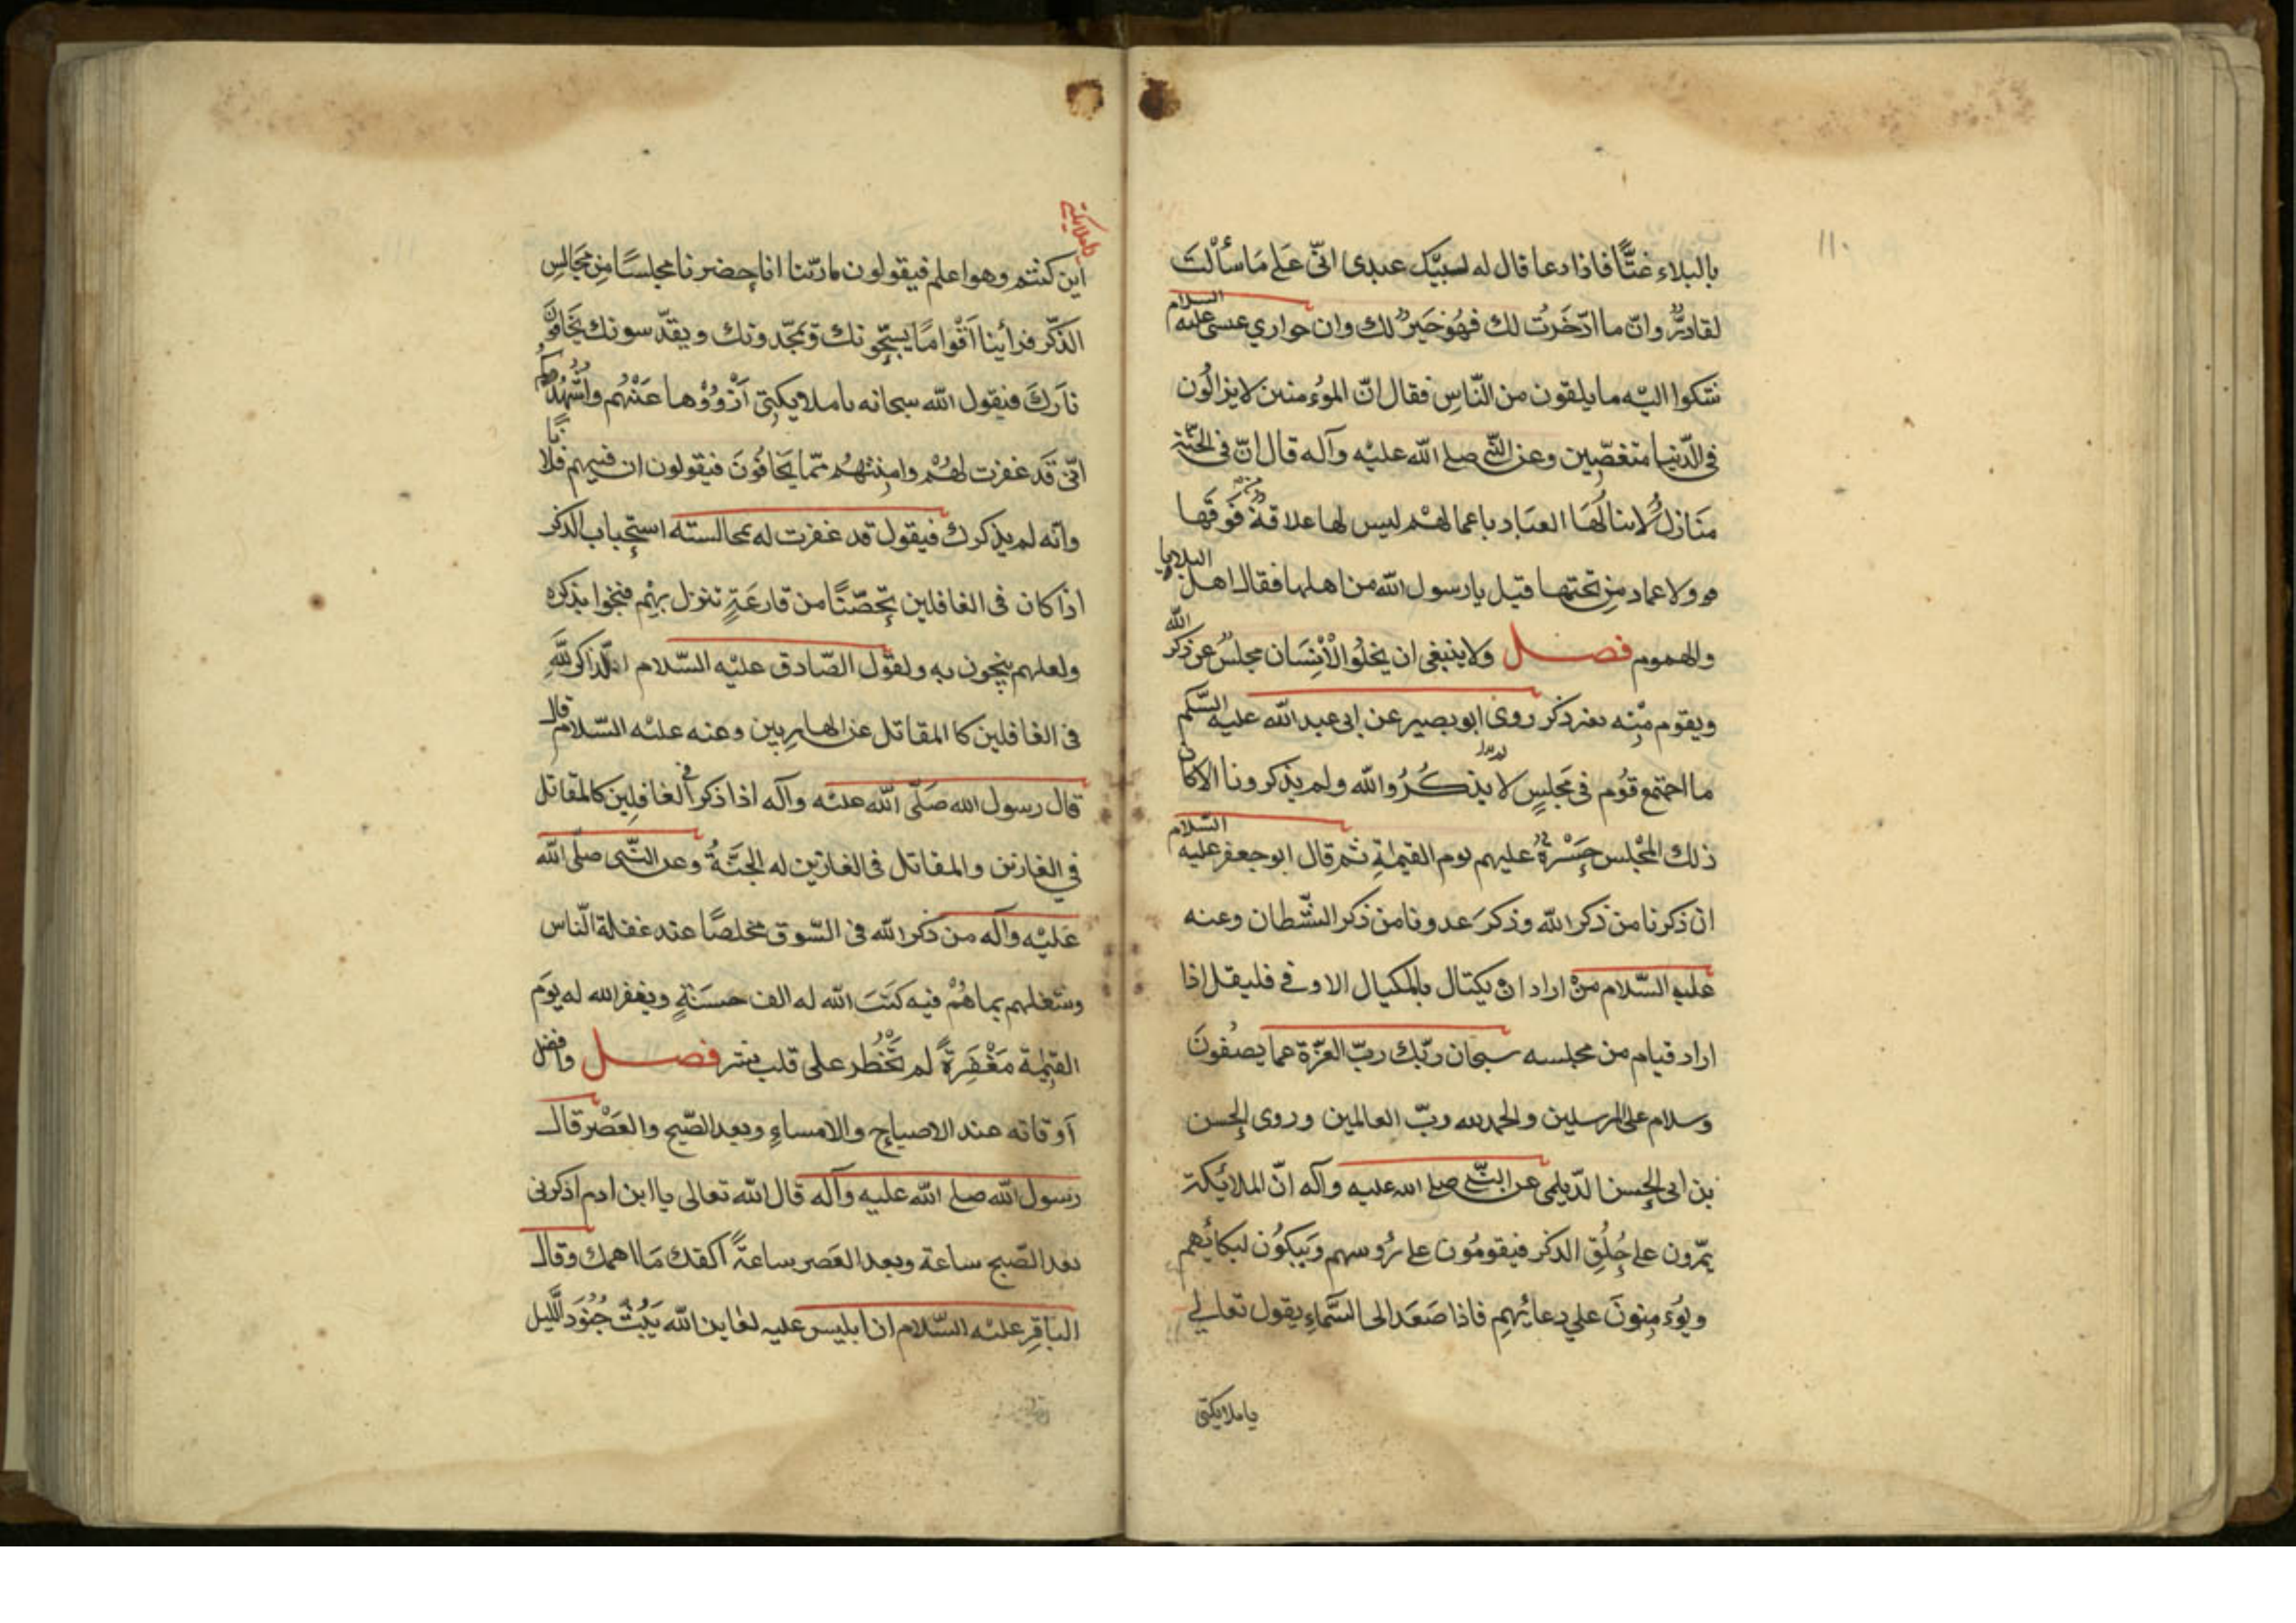 ١١٠
بالبلاء غتًّا فاذا دعا قال له لبيّك عبدى انّى عَلى مَا سَألْتَ
لقادرٌ وانّ ما ادّخَرتُ لك فهُوَ خَيرٌ لك وان حواري عيسى عليه السلام
شكوا اليْه ما يلقون من النّاسِ فقال انّ الموُمنين لا يزالُون
فى الدّنيا منغصّين وعن النّبى صلى الله عليْه وآله قال انّ فى الجنّة
مَنَازلَ لا ينالُهَا العبَاد باعمالهْم ليس لها علاقةٌ من فَوقهَا
ولا عماد مِن تحتها قيل يا رسول الله من اهلها فقال اهل البلايا
والهموم فصل ولا ينبغى ان يخلُوا الأنِسَان مجلسٌ عن ذكر الله
ويقوم مِنه بغير ذكر روى ابو بصير عن ابى عبد الله عليه السّلم
ما اجتمع قوُم فى مَجلسٍ لا يذكُرُوا الله ولم يذكرونا الا كان
ذلك المجْلس حَسْرةً عليهم يوم القيمةِ ثم قال ابو جعفر عليه السّلام
ان ذكرنا من ذكر الله وذكرَ عدونا من ذكر الشّيطان وعنه
عليه السّلام من اراد ان يكتال بالمكيال الاوفى فليقل اذا
اراد قيام من مجلسه سبحان ربّك ربّ العزّة عما يصفُونَ
وسلام على المرسلين والحمد لله ربّ العالمين وروى الحسن
بن ابى الحسن الدّيلمى عن النّبى صلى الله عليه وآله انّ الملائيكة
يمرّون على حِلَقِ الذكر فيقومُون على رؤُسهم وَيبكوُن لبكائهم
ويؤُمِنونَ على دعائهمِ فاذا صَعَد الى السّمَاءِ يقول تعالى
يا ملايكتى
يا ملايكتى
اين كنتم وهوا علم فيقولون يا ربّنا انا حضرنا مجلسًا مِن مجَالسِ
الذّكر فرأينا اَقْوامًا يسبّحِونك ويمجّدونك ويقدّسونك يخَافون
نارَكَ فيقول الله سبحانه يا ملايكتى اَزْوُوْها عَنْهُم واُشهِدُكم
انّى قَد غفرت لهُم وامِنتهُم ممّا يَخافُونَ فيقولون ان فيهم فلانًا
وانّه لم يذكرك فيقول قد غفرت له بمجالسته استحباب الذكر
اذا كان فى الغافلين تحصّنًا من قارعَةٍ تنزل بهِم فنجوا بذكره
ولعلهم ينجون به ولقول الصّادق عليْه السّلام الذّاكر لِلّهِ
فى الغافلين كا المقاتل عن الهارِبين وعنه عليْه السّلام قال
قال رسول الله صَلّى الله عليْه وآله اذا ذكر فى الغافلِين كالمقاتل
في الغازين والمقاتل فى الغازين له الجَنّةُ وعن النّبى صلّى الله
عَليْه وآله من ذكر الله فى السّوق مخلصًا عند غفلة النّاس
وشغلهم بما هُمْ فيه كَتبَ الله له الف حسَنةٍ ويغفر الله له يوَم
القيٰمة مَغْفِرةً لم تخْطُر على قلب بشر فصل وافضل
اَوقاته عند الاصباح والامساءِ وبعد الصّبح والعَصْر قال
رسول الله صلى الله عليه وآله قال الله تعالى يا ابن ادم اذكرنى
بعد الصّبح ساعة وبعد العَصر ساعةً اكفك مَا اهمك وقال
الباقِر عليْه السّلام ان ابليس عليه لعاين الله يَبُثّ جُنوُد اللّيل